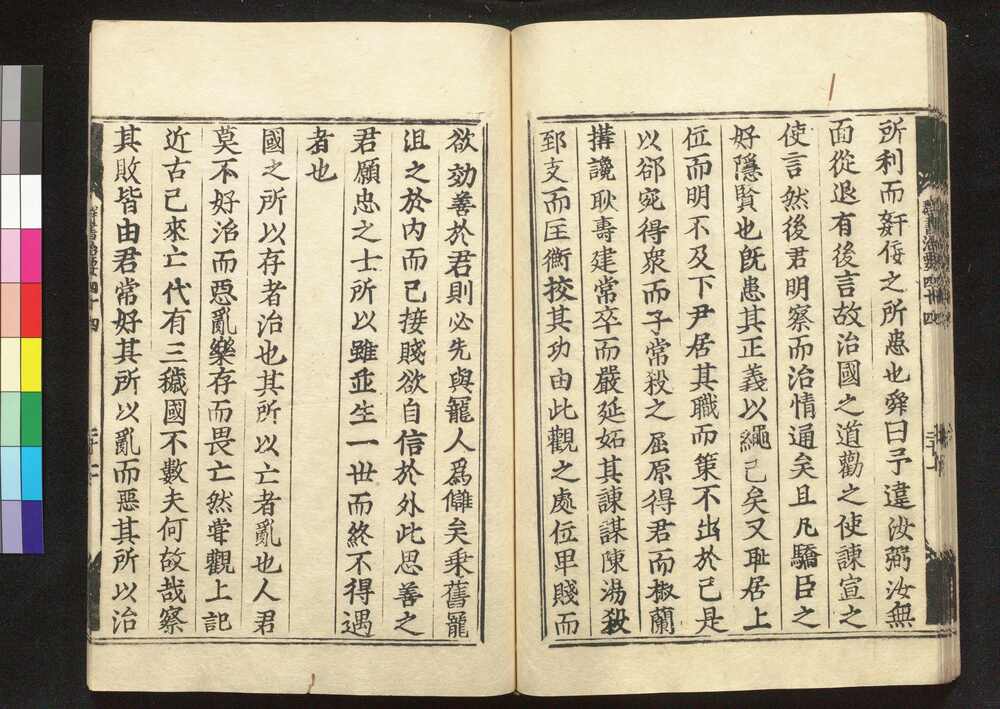 所利而奸佞之所患也舜曰予違汝弼汝無
面從退有後言故治國之道勸之使諫宣之
使言然後君明察而治情通矣且凡驕臣之
好隱賢也既患其正義以繩己矣又耻居上
位而明不及下尹居其職而策不出於己是
以郤宛得衆而子常殺之屈原得君而椒蘭
搆讒耿壽建常卒而嚴延妬其諫謀陳湯殺
郅支而匡衡挍其功由此觀之處位卑賤而
欲効善於君則必先與寵人爲讎矣乗舊寵
沮之於内而己接賤欲自信於外此思善之
君願忠之士所以雖並生一世而終不得遇
者也
國之所以存者治也其所以亡者亂也人君
莫不好治而惡亂樂存而畏亡然甞觀上記
近古已來亡代有三穢國不數夫何故哉察
其敗皆由君常好其所以亂而惡其所以治